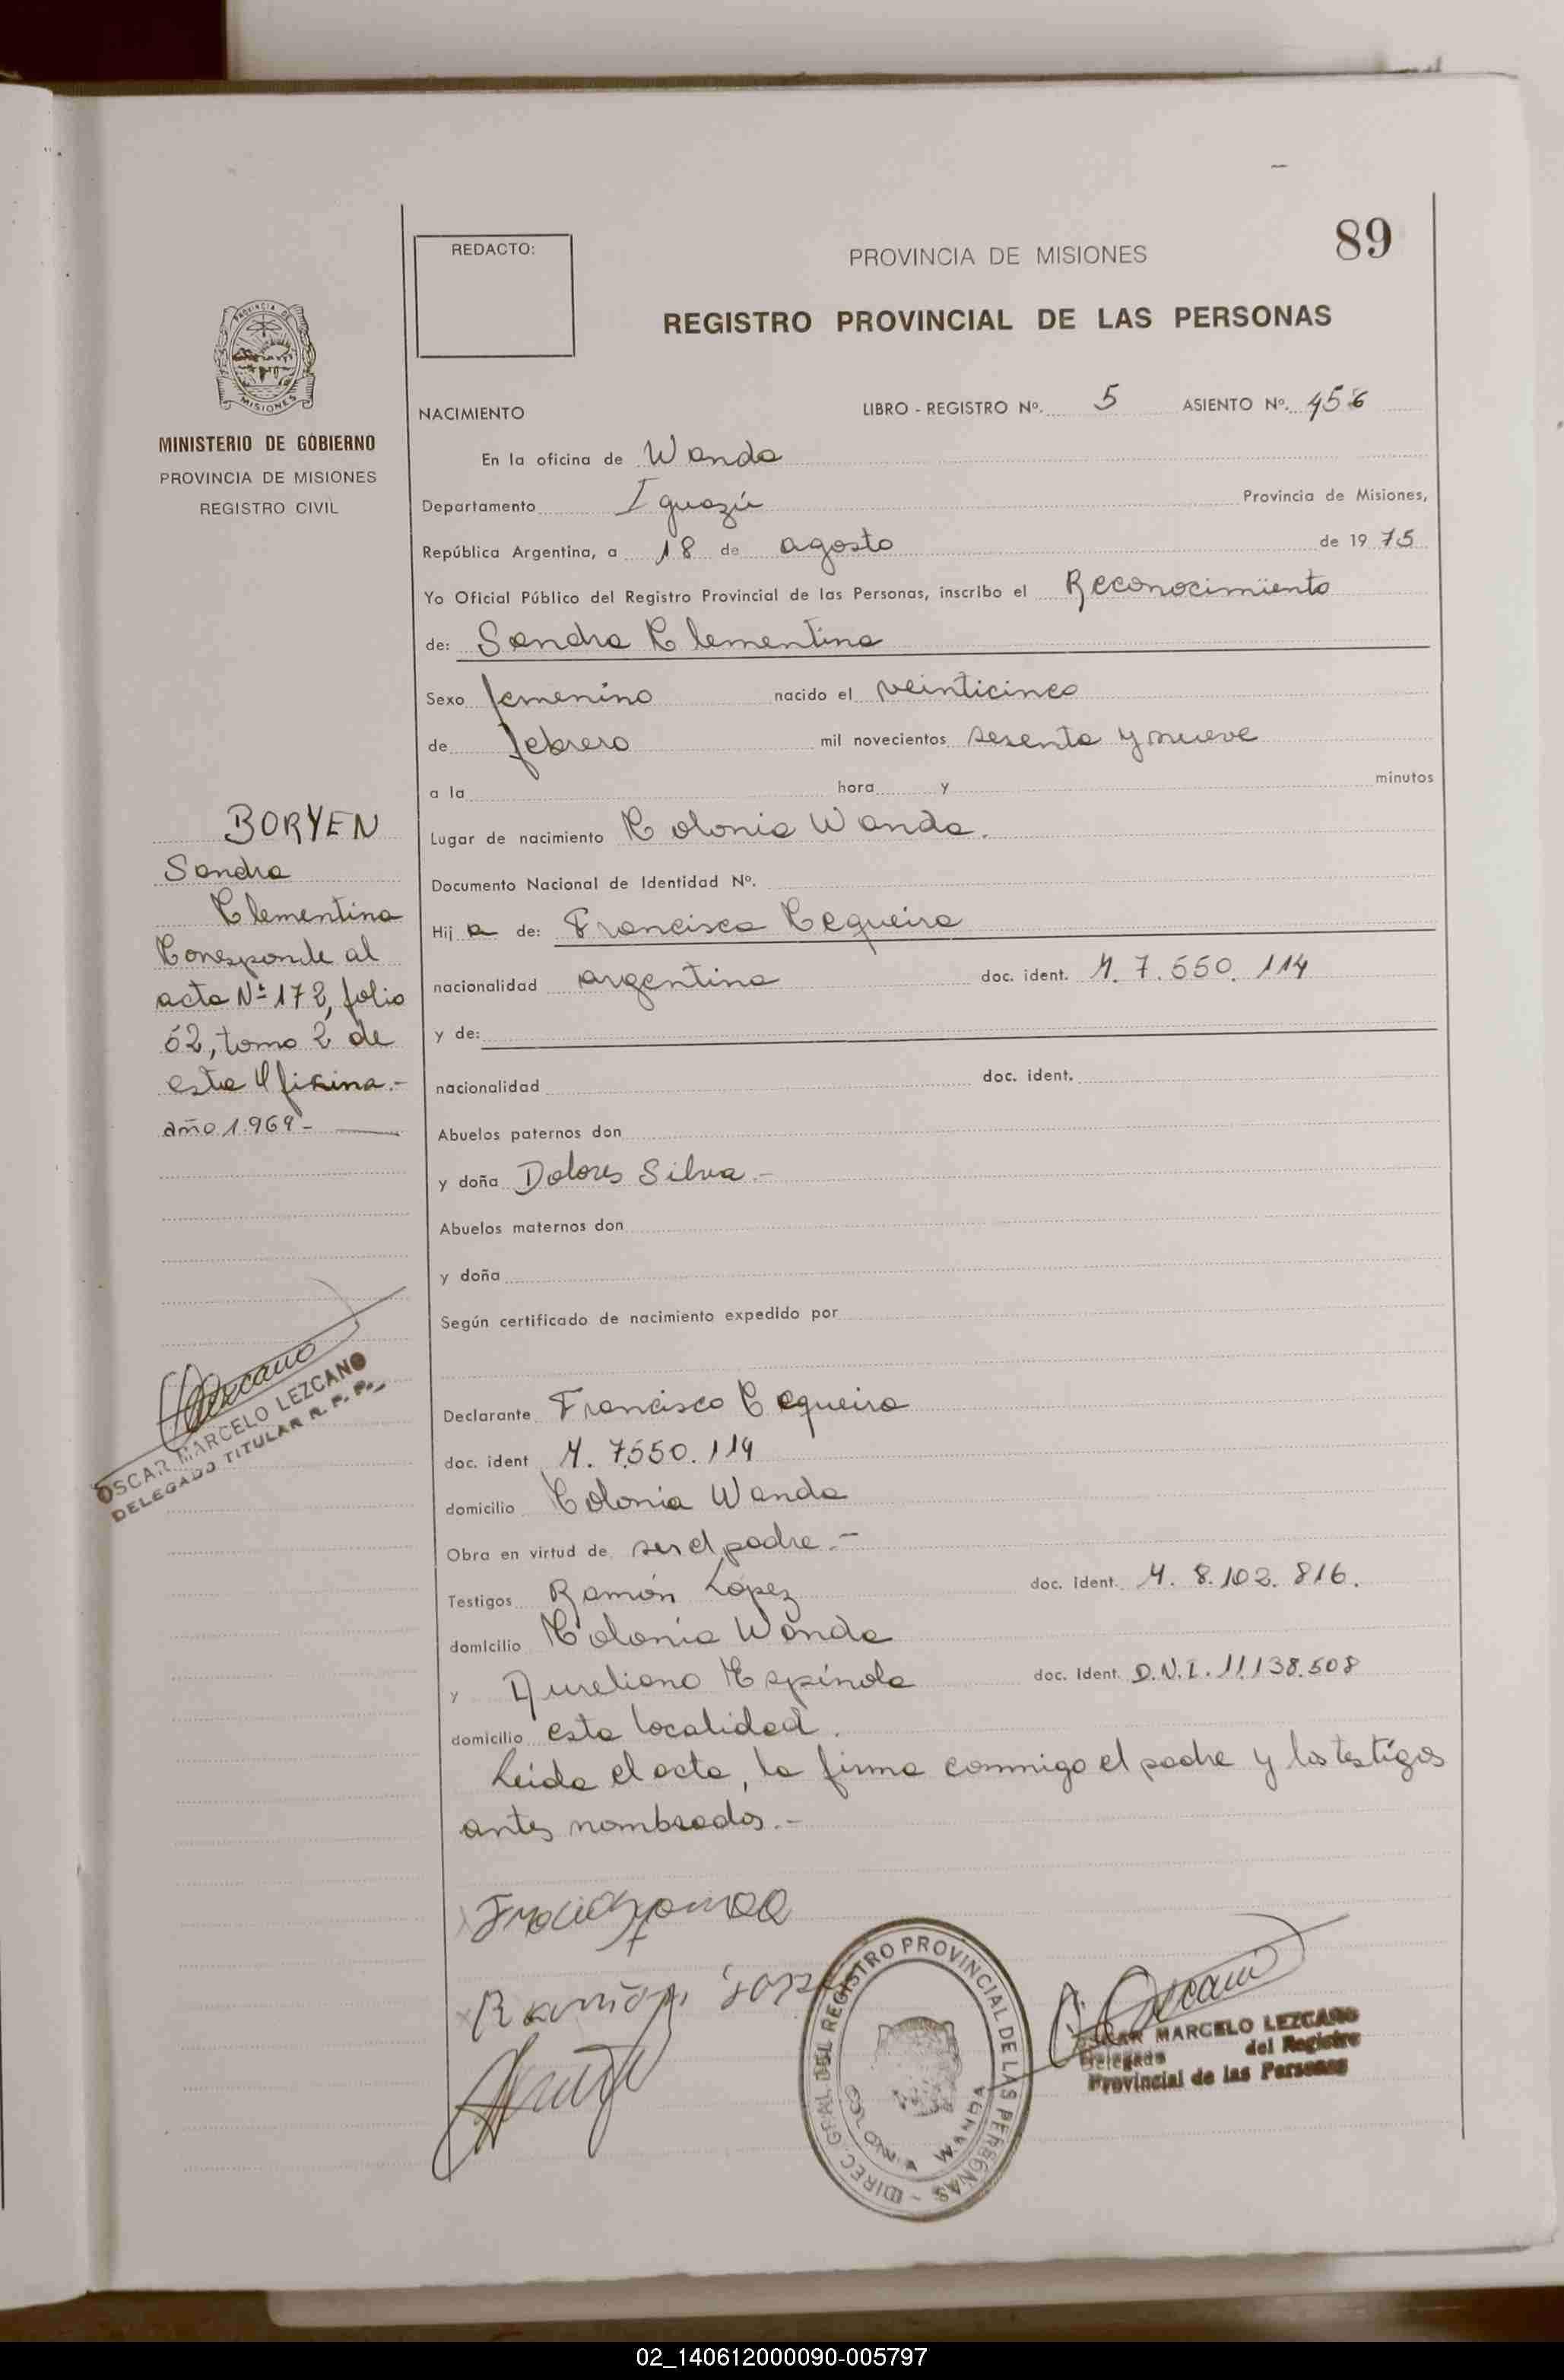 89
REDACTO:
PROVINCIA DE MISIONES
REGISTRO PROVINCIAL DE LAS PERSONAS
PROVINCIA DE
MISIONES
MINISTERIO DE GOBIERNO
PROVINCIA DE MISIONES
REGISTRO CIVIL
NACIMIENTO LIBRO - REGISTRO Nº. 5 ASIENTO Nº. 456
En la oficina de Wanda
Departamento Iguazú Provincia de Misiones,
República Argentina, a 18 de agosto de 1975
Yo Oficial Público del Registro Provincial de las Personas, inscribo el Reconocimiento
de: Sandra Clementina
Sexo femenino nacido el veinticinco
de febrero mil novecientos sesenta y nueve
a la hora y minutos
Lugar de nacimiento Colonia Wanda.
Documento Nacional de Identidad Nº.
Hij a de: Francisco Cequeira
nacionalidad argentina doc. ident. M. 7.550.114
y de:
nacionalidad doc. ident.
Abuelos paternos don
y doña Dolores Silva.-
Abuelos maternos don
y doña
Según certificado de nacimiento expedido por
Declarante Francisco Cequeira
doc. ident M. 7.550.114
domicilio Colonia Wanda
Obra en virtud de ser el padre.-
Testigos Ramón López doc. ident. M. 8.102.816.
domicilio Colonia Wanda
y Aureliano Espínola doc. ident. D.N.I. 11.138.508
domicilio esta localidad.
Leida el acta, la firma conmigo el padre y los testigos
antes nombrados.-
BORYEN
Sandra
Clementina
Corresponde al
acta Nº 172, folio
52, tomo 2 de
esta Oficina.-
año 1.969-
Lezcano
OSCAR MARCELO LEZCANO
DELEGADO TITULAR R. P. P.
Ramón
DIREC. GRAL DEL REGISTRO PROVINCIAL DE LAS PERSONAS -
COLONIA WANDA
OSCAR MARCELO LEZCANO
Delegado del Registro
Provincial de las Personas
02_140612000090-005797